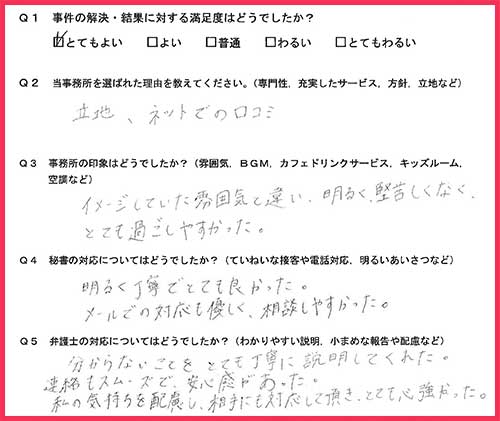 Q1 事件の解決・結果に対する満足度はどうでしたか？
☑とてもよい □よい □普通 □わるい □とてもわるい
Q2 当事務所を選ばれた理由を教えてください。（専門性，充実したサービス，方針，立地など）
立地、ネットでの口コミ
Q3 事務所の印象はどうでしたか？（雰囲気，BGM，カフェドリンクサービス，キッズルーム，
空調など）
イメージしていた雰囲気と違い、明るく、堅苦しくなく、
とても過ごしやすかった。
Q4 秘書の対応についてはどうでしたか？（ていねいな接客や電話対応，明るいあいさつなど）
明るく丁寧でとても良かった。
メールでの対応も優しく、相談しやすかった。
Q5 弁護士の対応についてはどうでしたか？（わかりやすい説明，小まめな報告や配慮など）
分からないことをとても丁寧に説明してくれた。
連絡もスムーズで、安心感があった。
私の気持ちを配慮し、相手にも対応して頂き、とても心強かった。